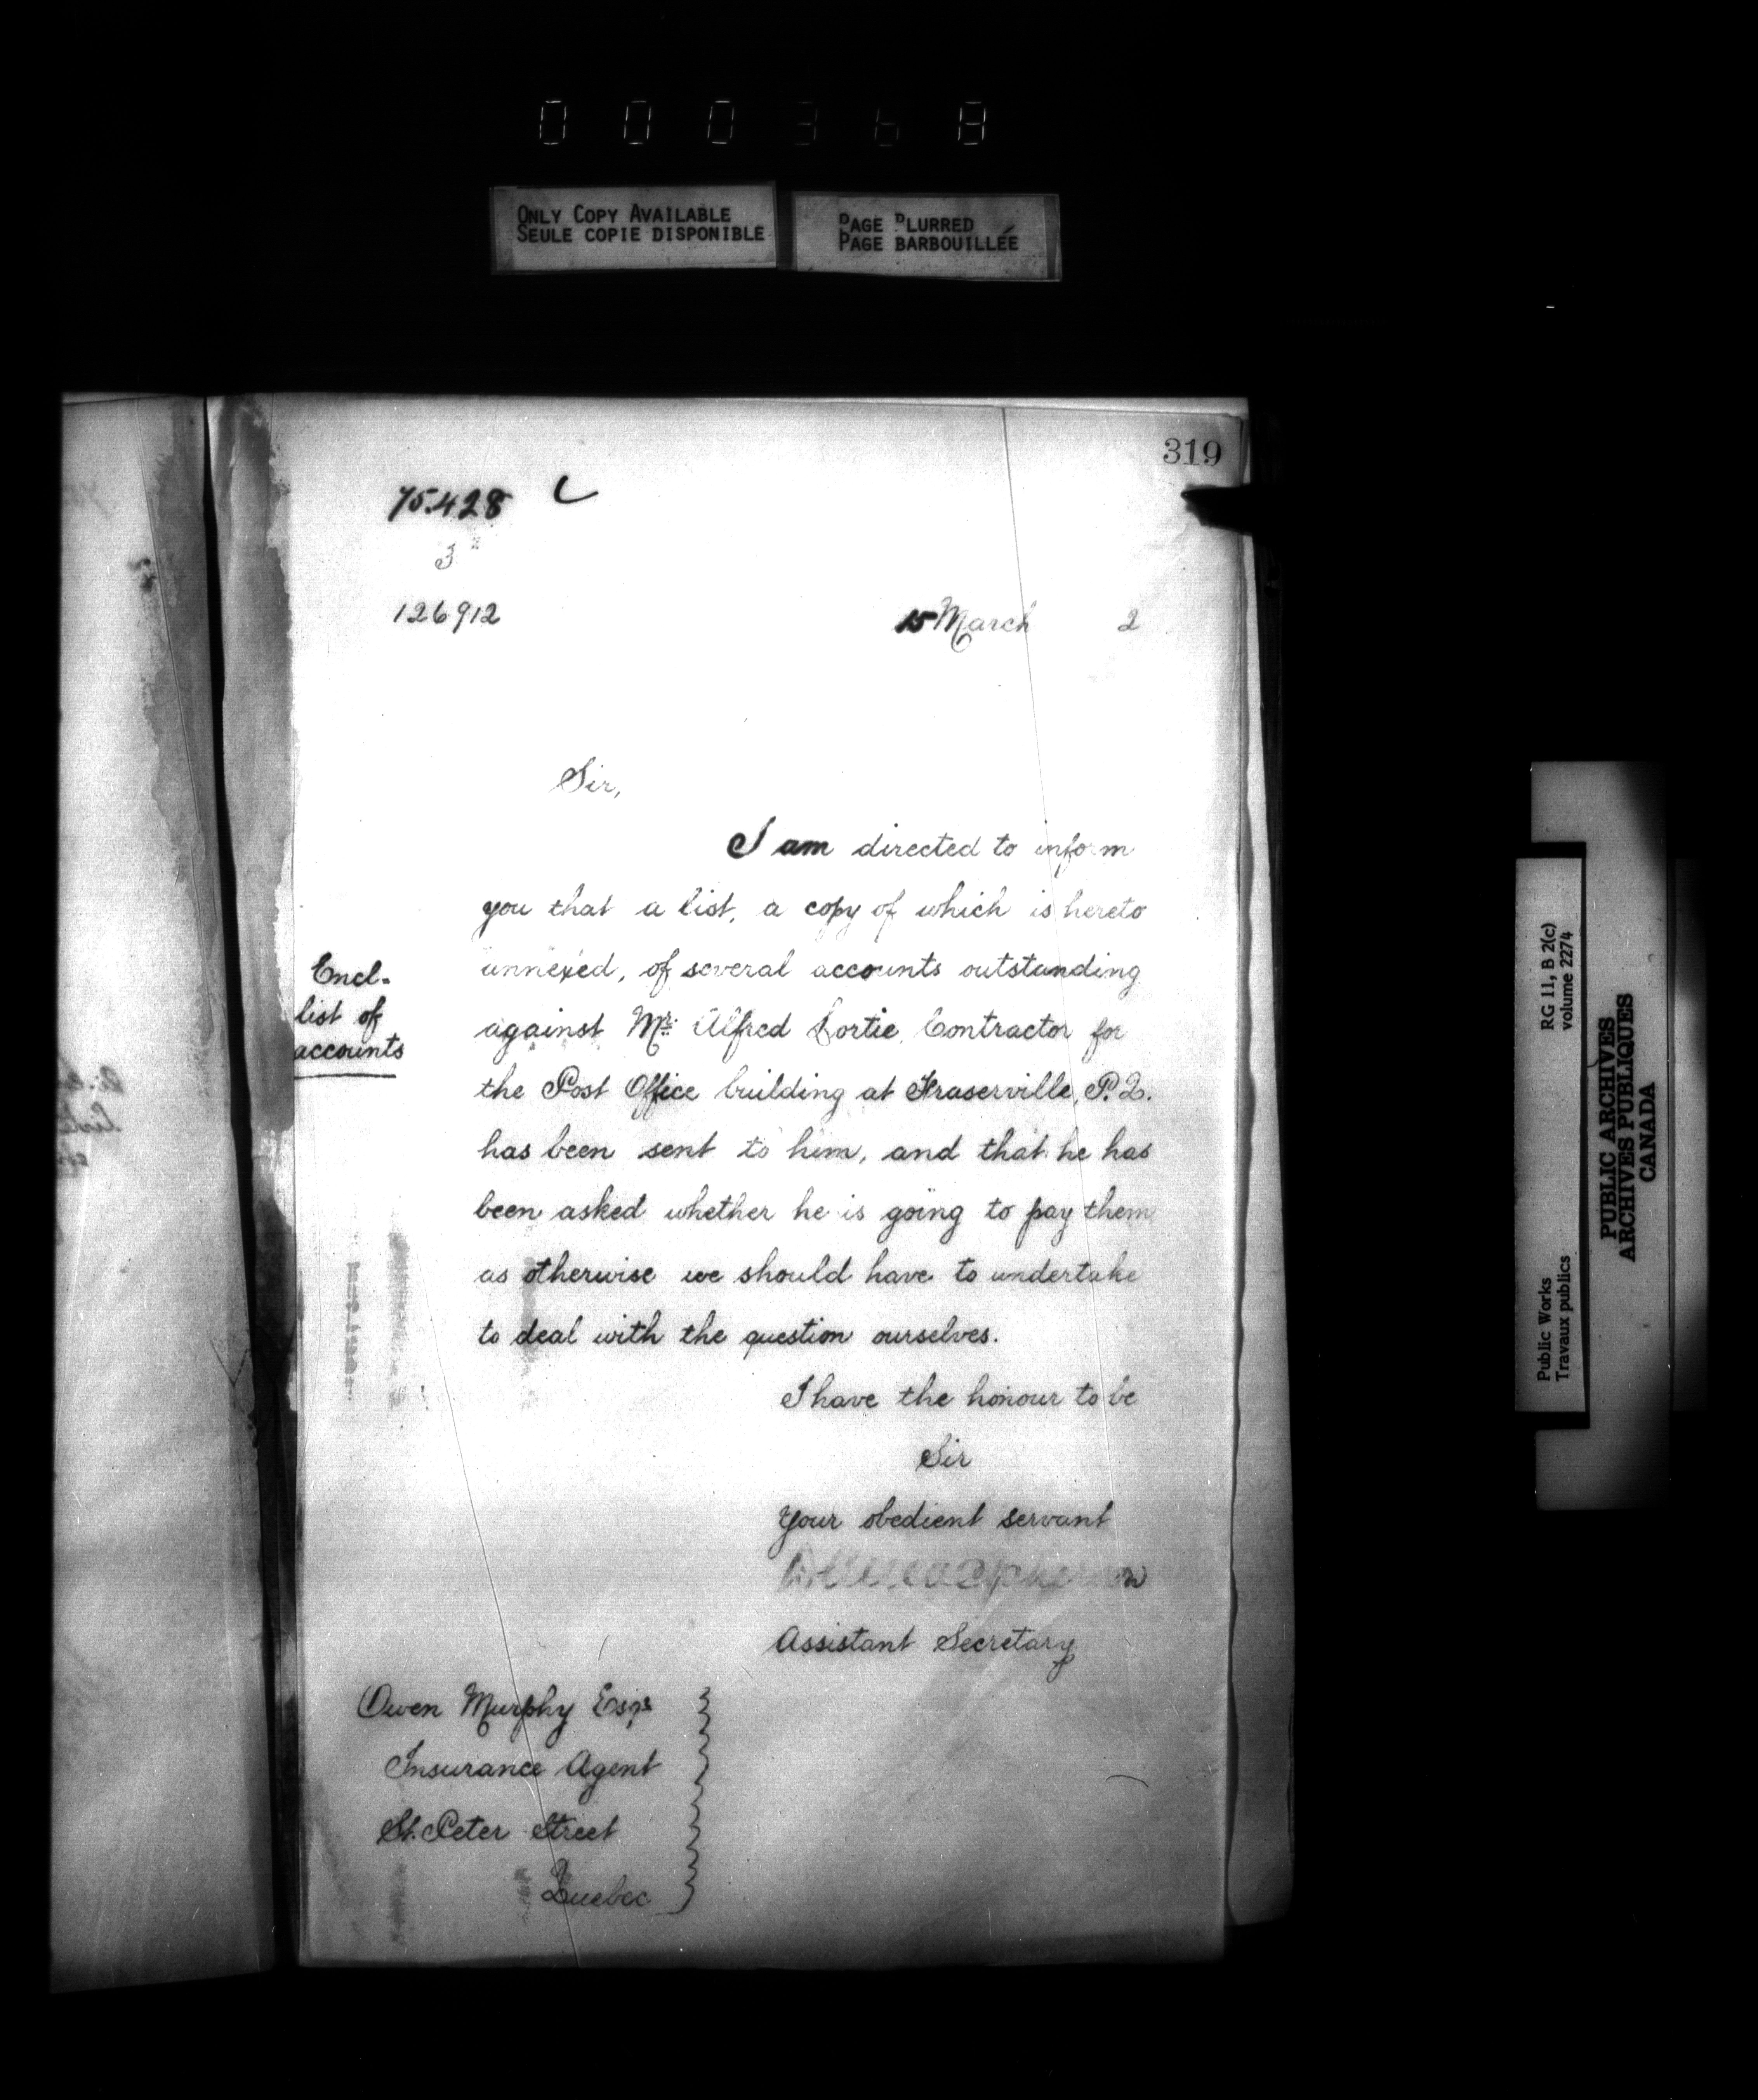 000368
ONLY COPY AVAILABLE
SEULE COPIE DISPONIBLE
PAGE BLURRED
PAGE BARBOUILLÉE
319
75.428
3
126912
15 March 2
Sir,
I am directed to inform
you that a list, a copy of which is hereto
annexed, of several accounts outstanding
against Mr. Alfred Lortie, Contractor for
the Post Office building at Fraserville, P.Q.
has been sent to him, and that he has
been asked whether he is going to pay them
as otherwise we should have to undertake
to deal with the question ourselves.
Encl.
list of
accounts
I have the honour to be
Sir
Your obedient servant
Assistant Secretary
Owen Murphy Esqr
Insurance Agent
St. Peter Street
Quebec
RG 11, B 2(c)
volume 2274
Public Works
Travaux publics
PUBLIC ARCHIVES
ARCHIVES PUBLIQUES
CANADA